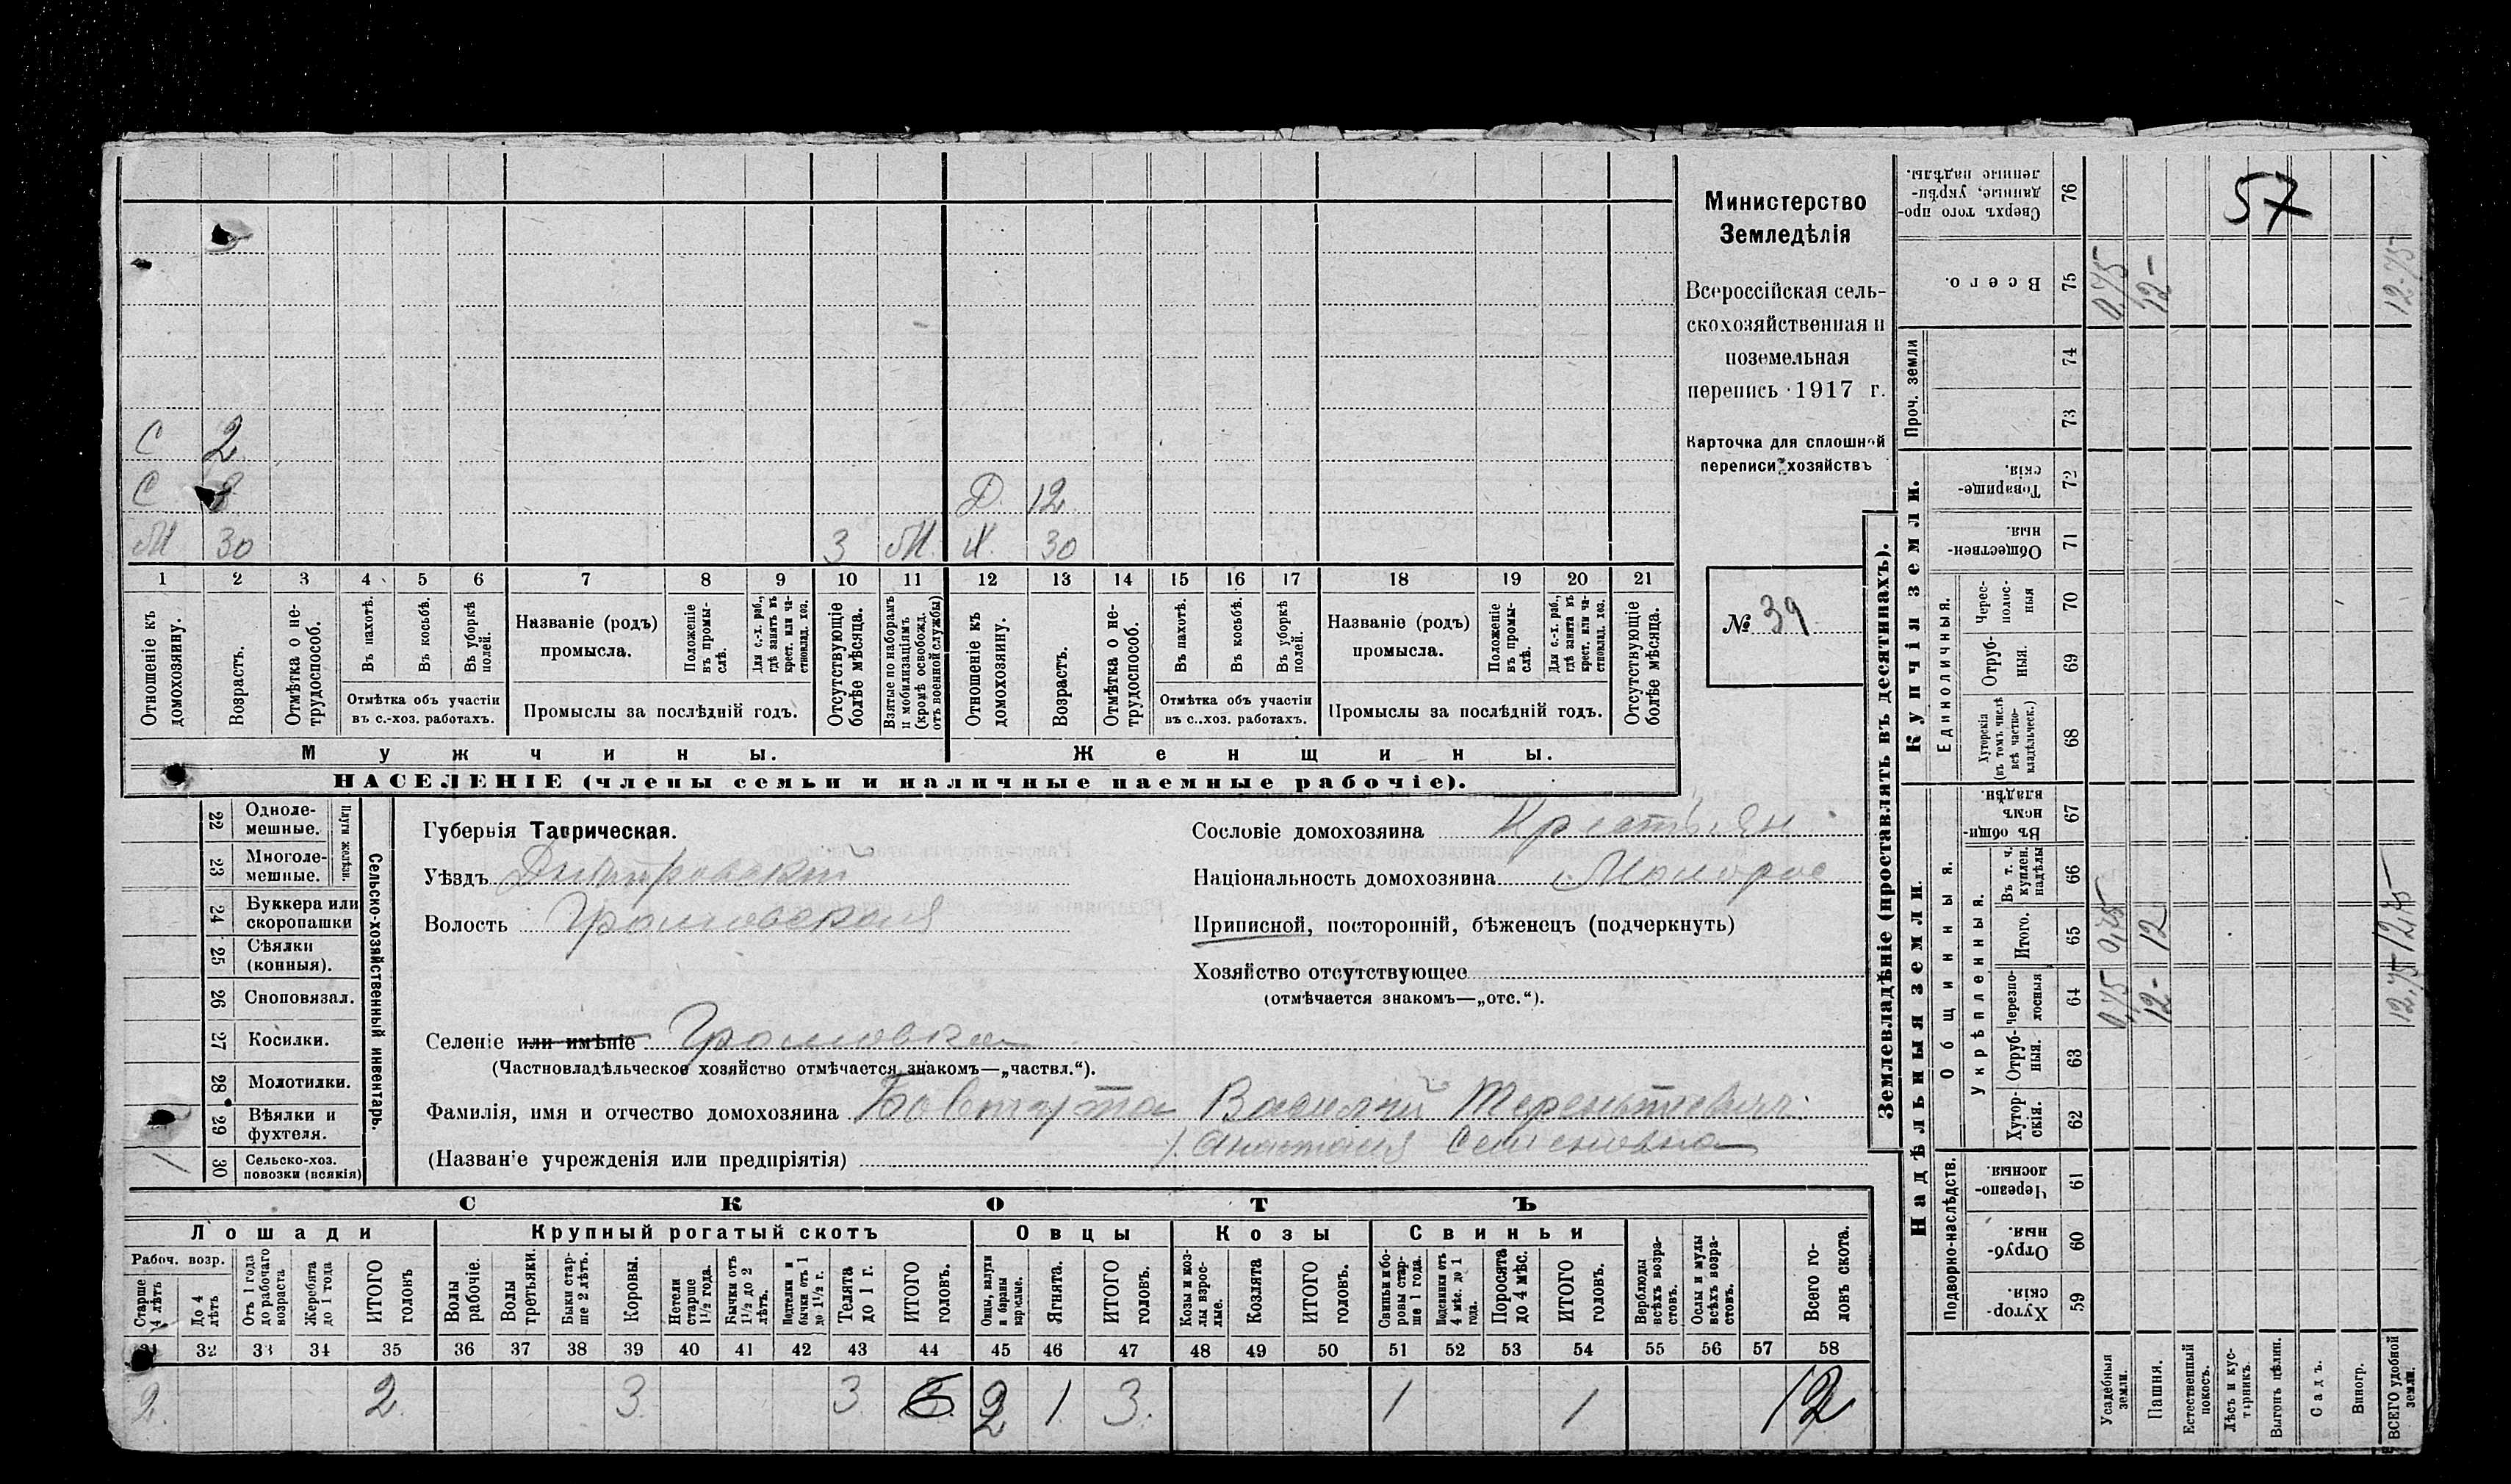 57
Министерство
Земледѣлія
Всероссійская сель-
скохозяйственная и
поземельная
перепись 1917 г.
Карточка для сплошной
переписи хозяйствъ
№ 39
С 2
С 8 Д. 12
М 30 3 М. Ж. 30
1 2 3 4 5 6 7 8 9 10 11 12 13 14 15 16 17 18 19 20 21
Отношеніе къ домохозяину.
Возрастъ.
Отмѣтка о не-трудоспособ.
Въ пахотѣ.
Въ косьбѣ.
Въ уборкѣ полей.
Отмѣтка объ участіи
въ с.-хоз. работахъ.
Названіе (родъ)
промысла.
Положеніе въ промы-слѣ.
Для с.-х. раб., гдѣ занятъ въ крест. или ча-стновлад. хоз.
Промыслы за послѣдній годъ.
Отсутствующіе болѣе мѣсяца.
Взятые по наборамъ и мобилизаціямъ (кромѣ освобожд. отъ военной службы)
Отношеніе къ домохозяину.
Возрастъ.
Отмѣтка о не-трудоспособ.
Въ пахотѣ.
Въ косьбѣ.
Въ уборкѣ полей.
Отмѣтка объ участіи
въ с..хоз. работахъ.
Названіе (родъ)
промысла.
Положеніе въ промы-слѣ.
Для с.-х. раб., гдѣ занята въ крест. или ча-стновлад. хоз.
Промыслы за послѣдній годъ.
Отсутствующіе болѣе мѣсяца.
Мужчины. Женщины.
НАСЕЛЕНІЕ (члены семьи и наличные наемные рабочіе).
Сельско-хозяйственный инвентарь.
Плуги желѣзн.
22 Одноле-мешные.
23 Многоле-мешные.
24 Буккера или скоропашки
25 Сѣялки (конныя).
26 Сноповязал.
27 Косилки.
28 Молотилки.
29 Вѣялки и фухтеля.
30 Сельско-хоз. повозки (всякія)
1
Губернія Таврическая.
Уѣздъ Днѣпровскій
Волость Громовская
Селеніе или имѣніе Громовка
(Частновладѣльческое хозяйство отмѣчается знакомъ—„частвл.“).
Фамилія, имя и отчество домохозяина Василій Терентьевич.
Семеновна
(Названіе учрежденія или предпріятія)
Сословіе домохозяина Крестьян
Національность домохозяина Малорос
Приписной, посторонній, бѣженецъ (подчеркнуть)
Хозяйство отсутствующее
(отмѣчается знакомъ—„отс.“).
СКОТЪ
Лошади Крупный рогатый скотъ Овцы Козы Свиньи
Рабоч. возр.
Старше 4 лѣтъ
До 4 лѣтъ
Отъ 1 года до рабочаго возраста
Жеребята до 1 года
ИТОГО головъ
Волы рабочіе.
Волы третьяки.
Быки стар-ше 2 лѣтъ.
Коровы.
Нетели старше 1½ года.
Бычки отъ 1½ до 2 лѣтъ.
Подтелки и бычки отъ 1 до 1½ г.
Телята до 1 г.
ИТОГО головъ.
Овцы, валухи и бараны взрослые.
Ягнята.
ИТОГО головъ.
Козы и коз-лы взрос-лые.
Козлята
ИТОГО головъ.
Свиньи и бо-ровы стар-ше 1 года.
Подсвинки отъ 4 мѣс. до 1 года.
Поросята до 4 мѣс.
ИТОГО головъ.
Верблюды всѣхъ возра-стовъ.
Ослы и мулы всѣхъ возра-стовъ.
Всего го-ловъ скота.
31 32 33 34 35 36 37 38 39 40 41 42 43 44 45 46 47 48 49 50 51 52 53 54 55 56 57 58
2. 2. 3. 3 6 2 1 3. 1 1 12
Землевладѣніе (проставлять въ десятинахъ).
Купчія земли.
Надѣльныя земли.
Сверхъ того про-данные, укрѣп-ленные надѣлы. 76
Всего. 75 0,75 12- 12-75
Проч. земли
74
73
Товарище-скія. 72
Обществен-ныя. 71
Единоличныя.
Черес-полос-ныя 70
Отруб-ныя. 69
Хуторскія (въ томъ числѣ всѣ частно-владѣльческ.) 68
Общинныя.
Въ общи-номъ владѣн. 67
Укрѣпленныя.
Въ т. ч. куплен. надѣлы 66
Итого. 65 0,75 12 12,75
Черезпо-лосныя 64 0,75 12- 12,75
Отруб-ныя. 63
Хутор-скія. 62
Подворно-наслѣдств.
Черезпо-лосныя. 61
Отруб-ныя. 60
Хутор-скія. 59
Усадебныя земли.
Пашня.
Естественный покосъ.
Лѣсъ и кус-тарникъ.
Выгонъ цѣлин.
Садъ.
Виногр.
ВСЕГО удобной земли.